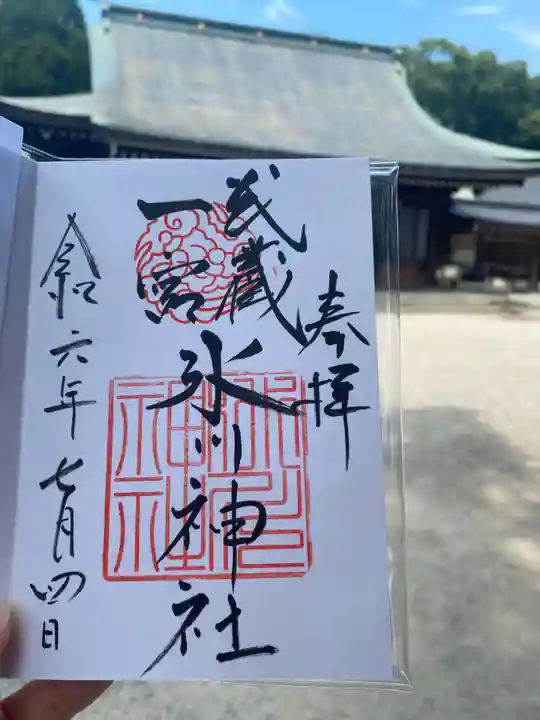 奉拝
武蔵
一宮
氷川神社
令和六年七月四日
氷川
神社